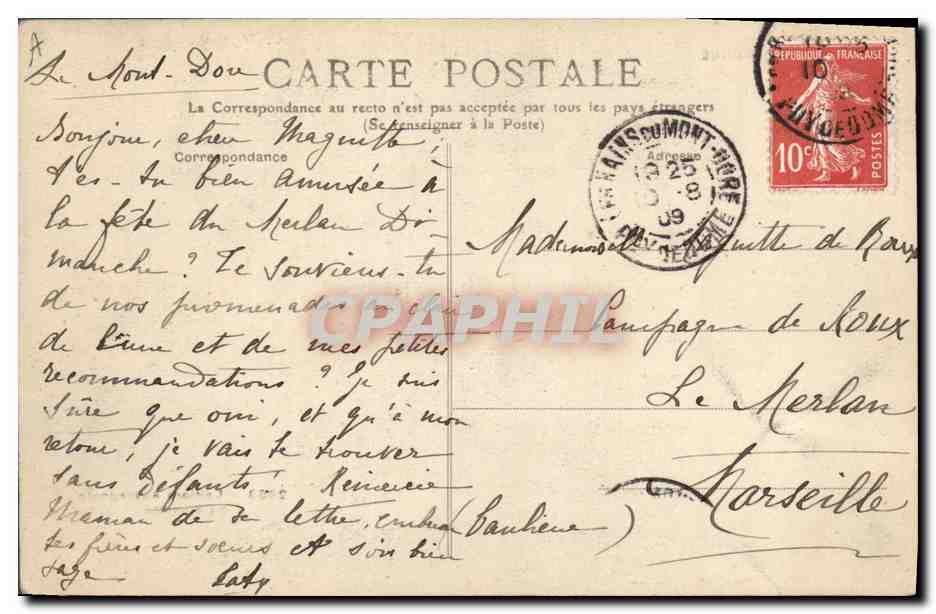 A
Le Mont-Dore
CARTE POSTALE
La Correspondance au recto n'est pas acceptée par tous les pays étrangers
(Se renseigner à la Poste)
Correspondance
Adresse
Bonjour, chère Maguitte,
T'es-tu bien amusée à
la fête du Merlan Di-
manche? Te souviens-tu
de nos promenades
de l'âne et de mes petites
recommandations? Je suis
sûre que oui, et qu'à mon
retour, je vais te trouver
sans défauts! Remercie
Maman de sa lettre, embrasse
tes frères et soeurs et sois bien
sage
Mademoiselle Maguitte de Roux
Campagne de Roux
Le Merlan
Marseille
(banlieue)
LES BAINS DU MONT-DORE
25
10 -8
09
PUY DE DOME
REPUBLIQUE FRANÇAISE
10c
POSTES
10
PUY DE DOME
CPAPHIL